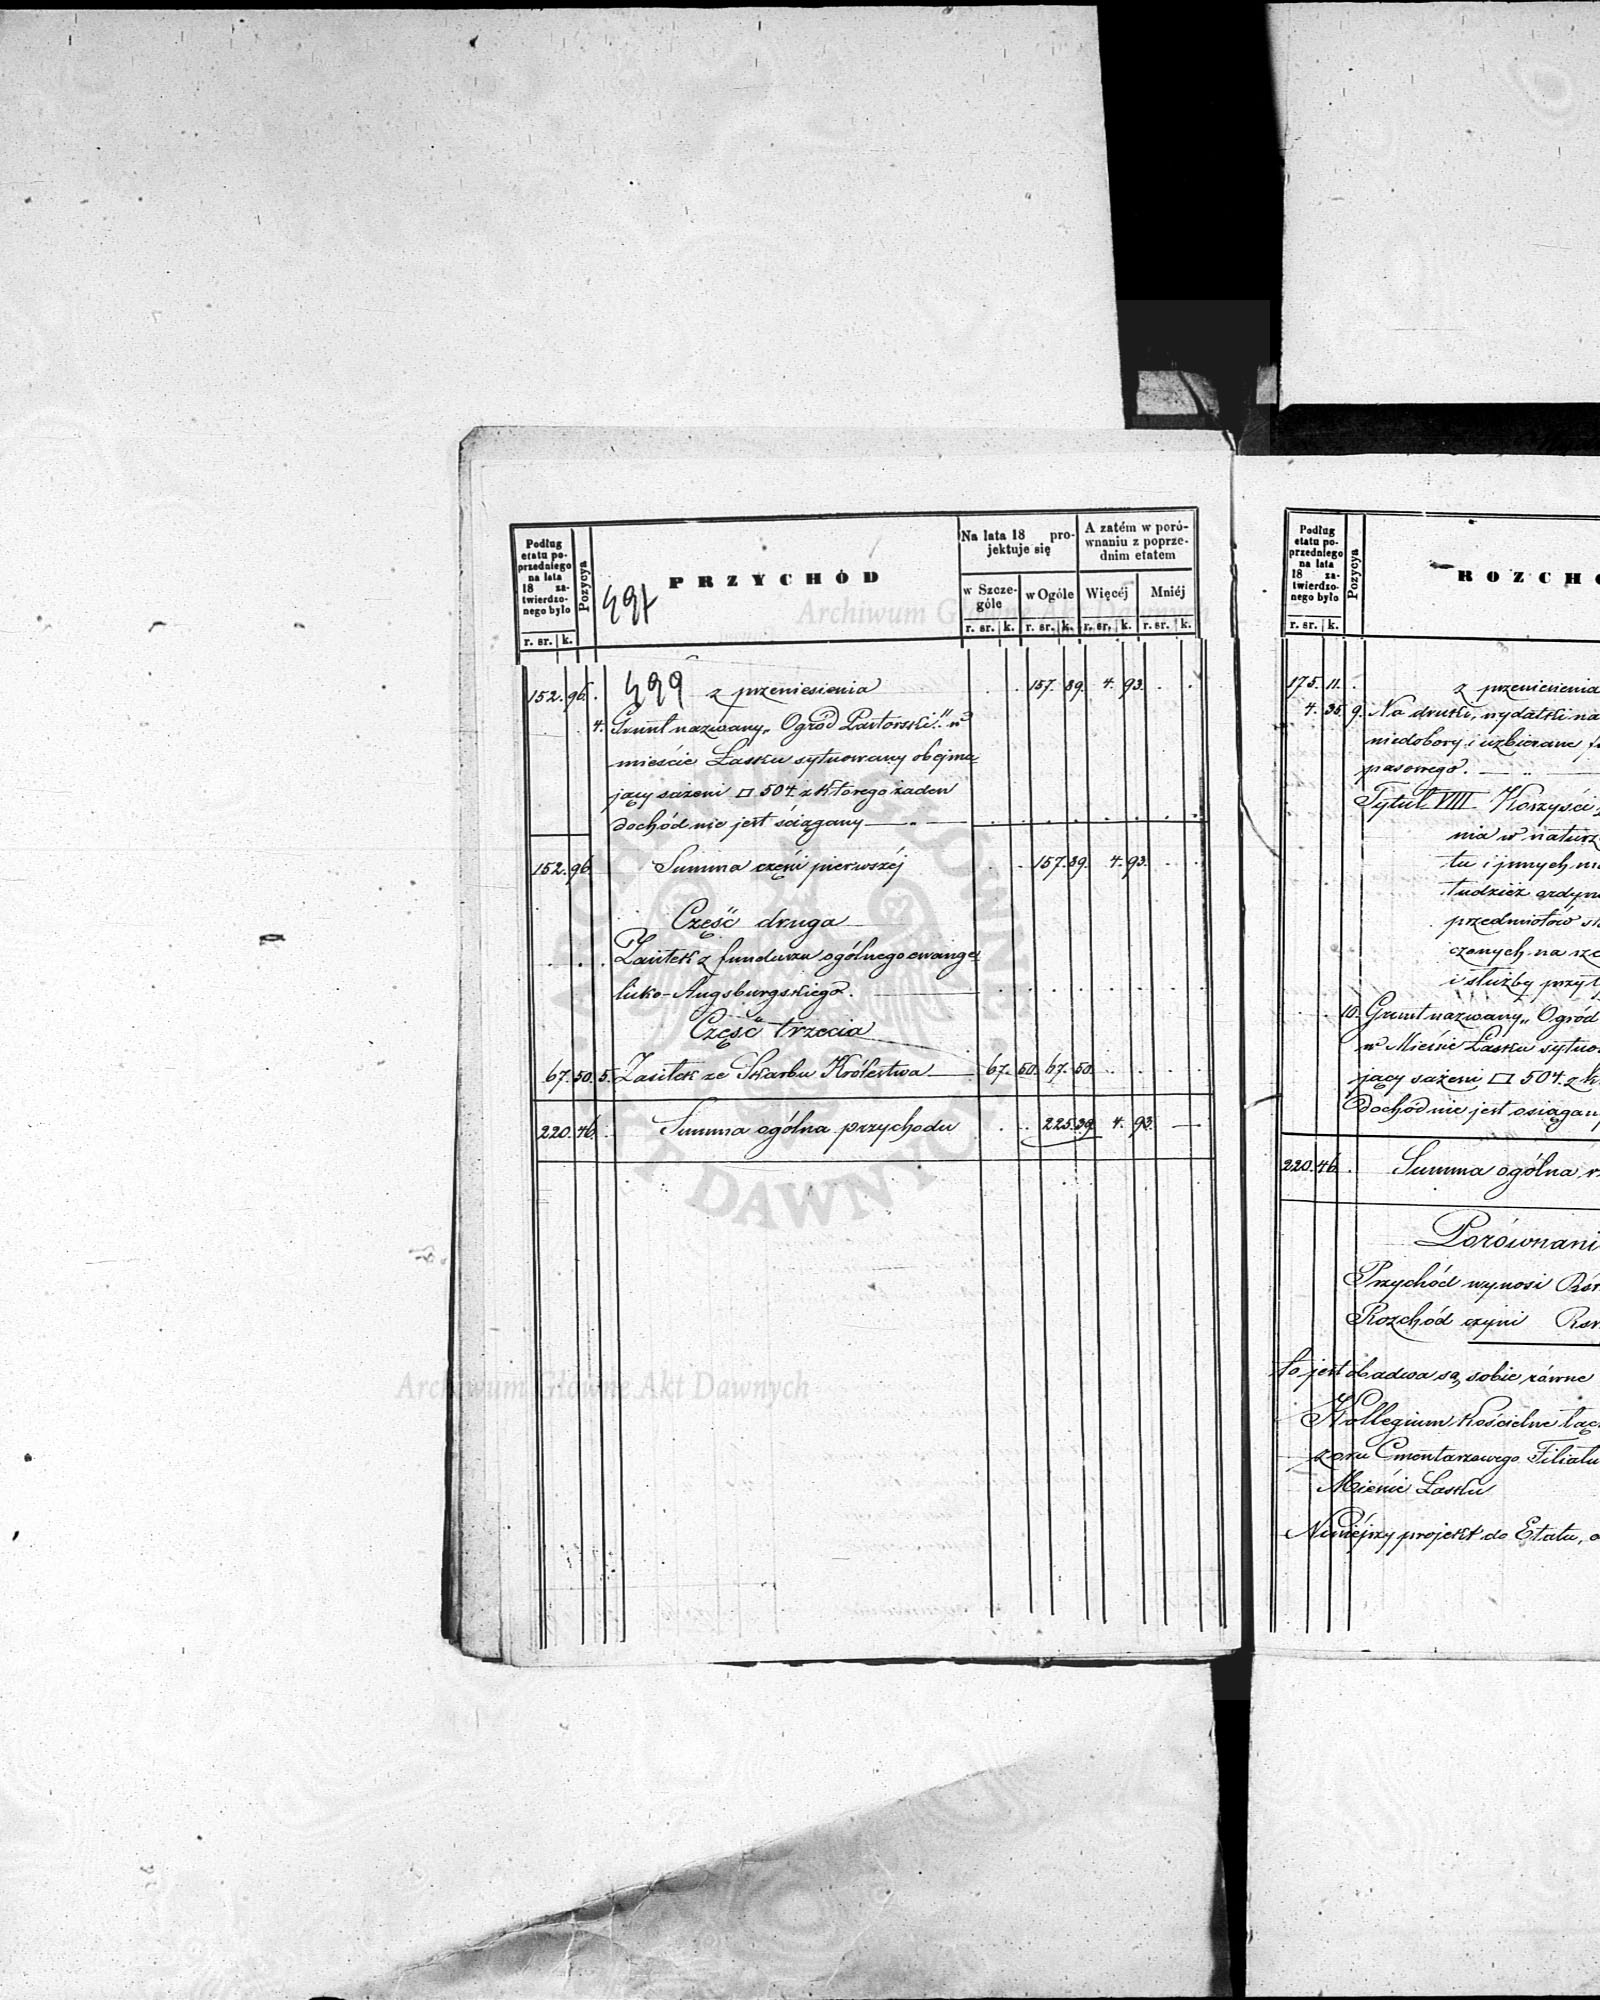 Podług
etatu po-
przedniego
na lata
18 za-
twierdzo-
nego było
r. sr. k.
Pozycya
PRZYCHÓD
Na lata 18 pro-
jektuje się
w Szcze-
góle
w Ogóle
r. sr. k. r. sr. k.
A zatém w poró-
wnaniu z poprze-
dnim etatem
Więcéj Mniéj
r. sr. k. r. sr. k.
152. 96. z przeniesienia 157. 89. 4. 93.
4. Grunt nazwany „Ogród Pastorski" w
mieście Łasku sytuowany obejmu
jący sażeni □ 504. z którego żaden
dochód nie jest ściągany
152. 96 Summa części pierwszéj 157. 89. 4. 93.
Część druga
Zasiłek z funduszu ogólnego ewange
licko-Augsburgskiego.
Część trzecia
67. 50. 5. Zasiłek ze Skarbu Królestwa 67. 50. 67. 50.
220. 46. Summa ogólna przychodu 225. 39. 4. 93.
Podług
etatu po-
przedniego
na lata
18 za-
twierdzo-
nego było
r. sr. k.
Pozycya
ROZCHO
175. 11. z przeniesienia
4. 35. 9. Na druki, wydatki na
niedobory i uzbierane
pasowego.
Tytuł VIII Korzyści
nia w naturz
tu i innych
tudzież ordyn
przedmiotów
czonych na rze
i służby przy
10. Grunt nazwany „Ogród
w Mieście Łasku sytuo
jący sażeni □ 504. z k
dochód nie jest osiągan
220. 46. Summa ogólna r
Porównani
Przychód wynosi Rsr
Rozchód czyni Rsr
to jest obadwa są sobie równe
Kollegium Kościelne łąc
zoru Cmentarzowego Filiału
Mieście Łasku
Niniejszy projekt do Etatu,
Archiwum Główne Akt Dawnych
Archiwum Główne Akt Dawnych
ARCHIWUM GŁÓWNE AKT DAWNYCH